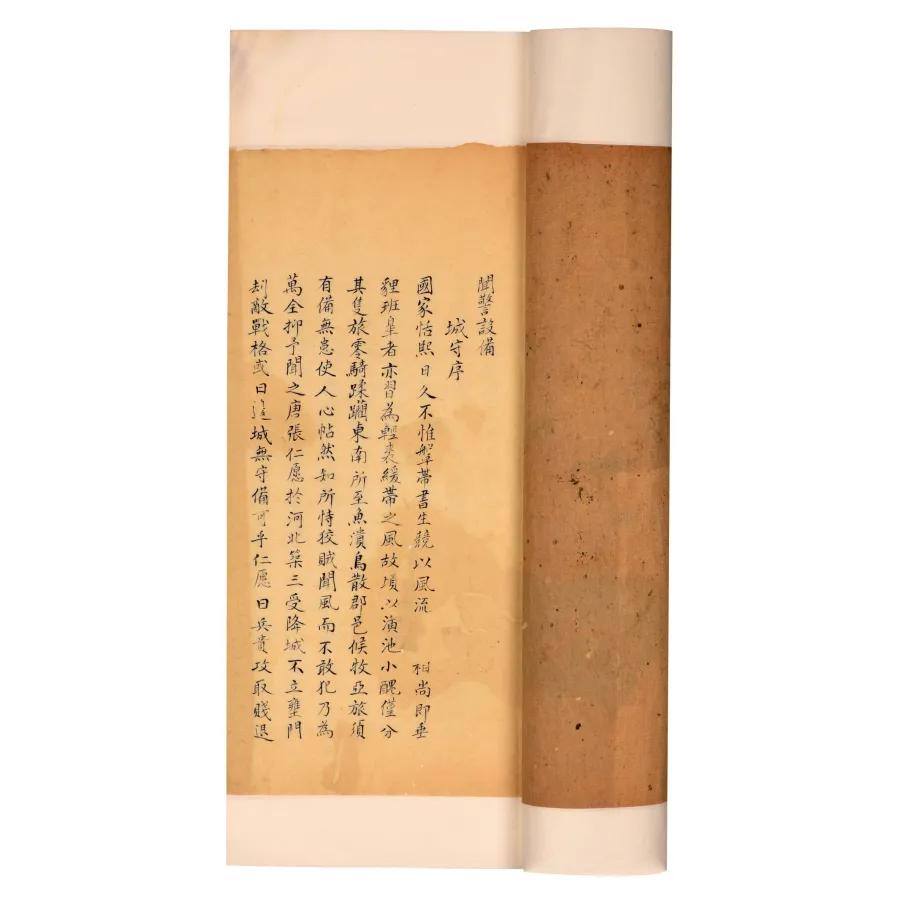 聞警設備
城守序
國家恬熙日久不惟鞶帶書生競以風流 相尚即垂
貍班皇者亦習為輕裘緩帶之風故頃以潢池小醜僅分
其隻旅零騎蹂躪東南所至魚潰鳥散郡邑候牧亞旅須
有備無患使人心帖然知所恃狡賊聞風而不敢犯乃為
萬全抑予聞之唐張仁愿於河北築三受降城不立壅門
刦敵戰格或曰邉城無守備可乎仁愿曰兵貴攻取賤退